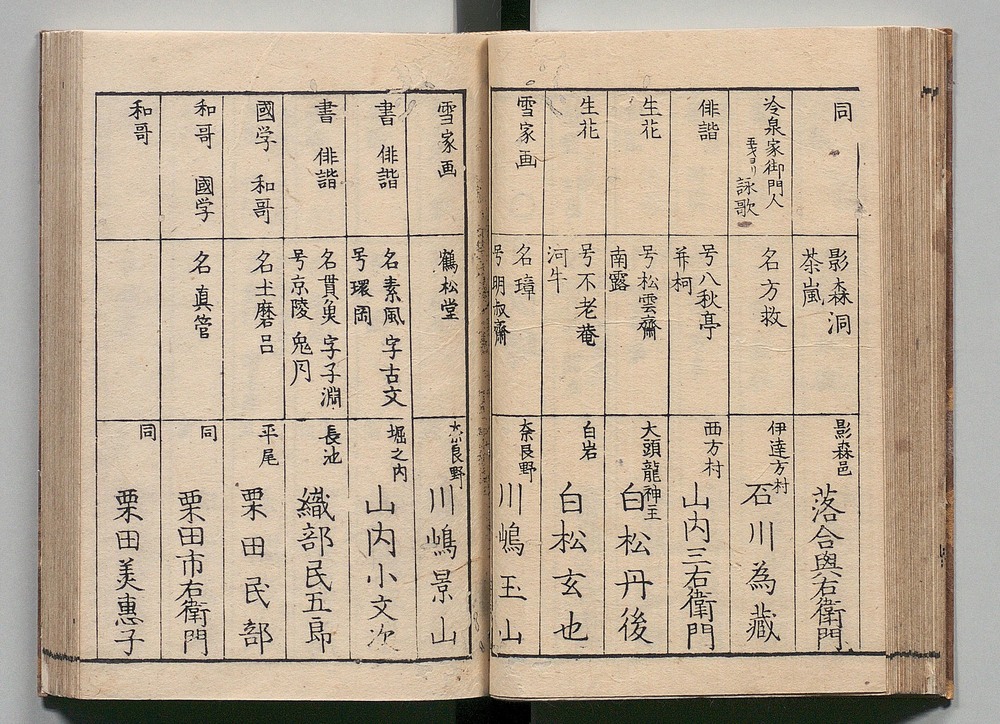 同
影森洞
茶嵐
影森邑
落合與右衛門
冷泉家御門人
詠歌
名方救
伊達方村
石川為藏
俳諧
号八秋亭
并柯
西方村
山内三右衛門
生花
号松雲齋
南露
大頭龍神主
白松丹後
生花
号不老菴
河牛
白岩
白松玄也
雪家画
名璋
号明叔齋
奈良野
川嶋玉山
雪家画
鶴松堂
奈良野
川嶋景山
書 俳諧
名素風 字古文
号環岡
堀之内
山内小文次
書 俳諧
名貫魚 字子淵
号京陵 鬼月
長池
織部民五郎
國学 和哥
名土磨呂
平尾
栗田民部
和哥 國学
名真管
同
栗田市右衛門
和哥
同
栗田美惠子